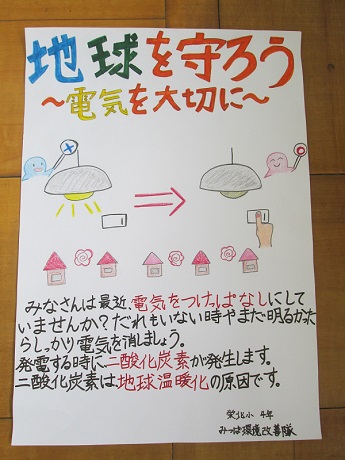 地球を守ろう
～電気を大切に～
みなさんは最近、電気をつけっぱなしにして
いませんか？だれもいない時やまだ明るかった
らしっかり電気を消しましょう。
発電する時に二酸化炭素が発生します。
二酸化炭素は、地球温暖化の原因です。
栄北小 4年
みつば環境改善隊